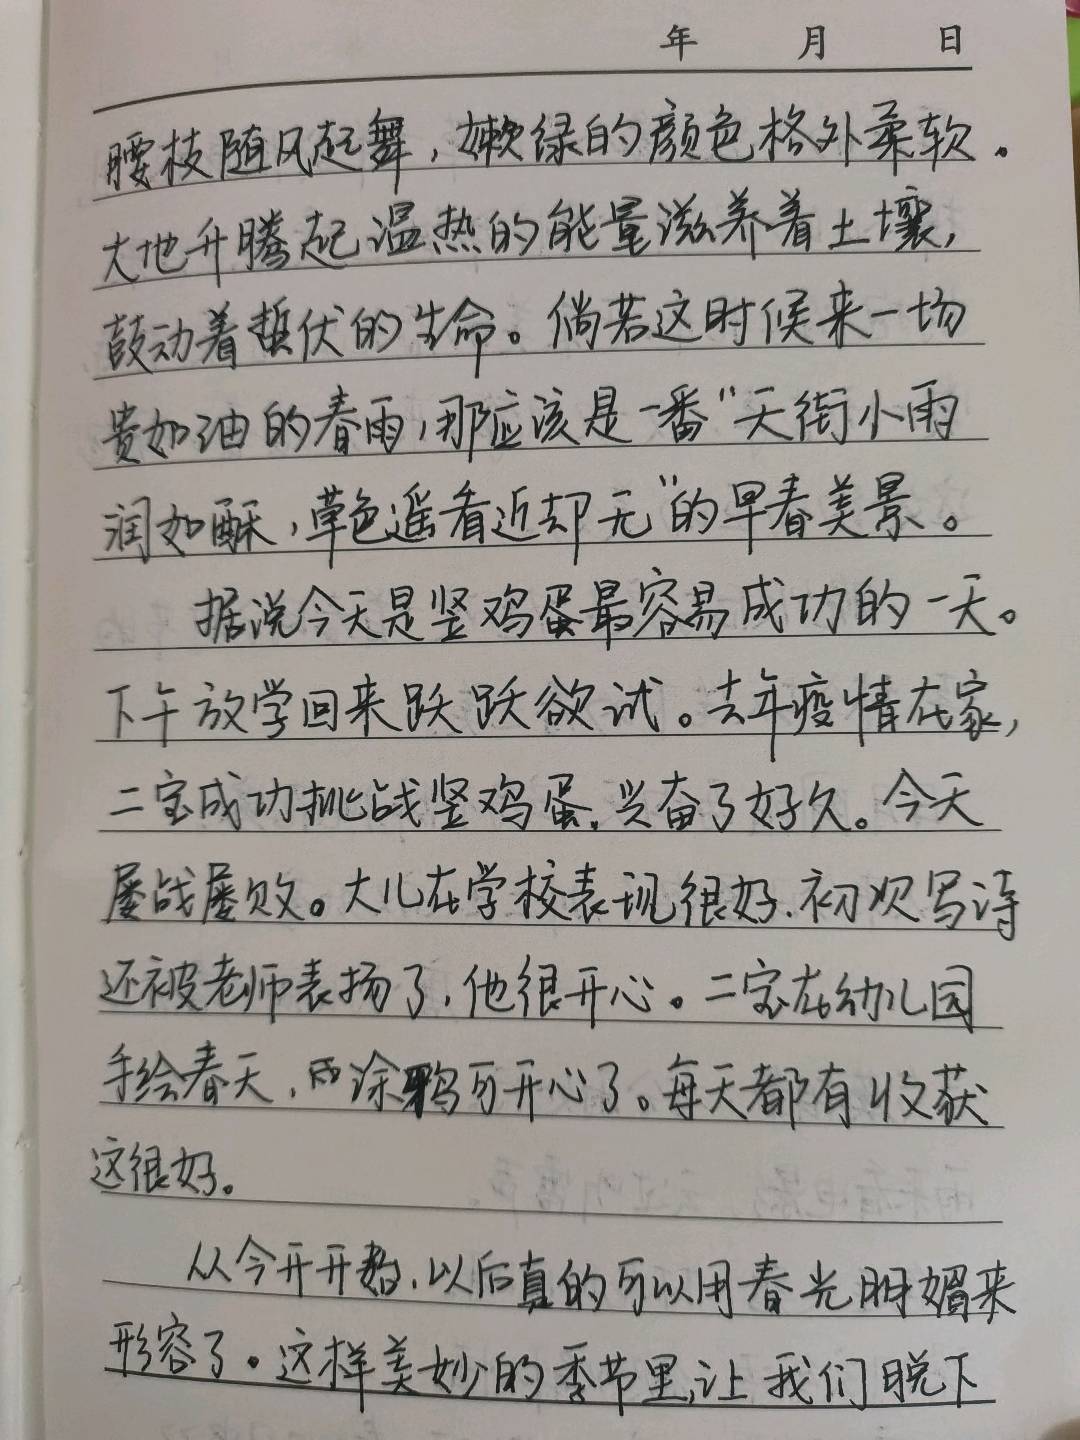 年 月 日
腰枝随风起舞，嫩绿的颜色格外柔软。
大地升腾起温热的能量滋养着土壤，
鼓动着蛰伏的生命。倘若这时候来一场
贵如油的春雨，那应该是一番“天街小雨
润如酥，草色遥看近却无”的早春美景。
据说今天是竖鸡蛋最容易成功的一天。
下午放学回来跃跃欲试。去年疫情在家，
二宝成功挑战竖鸡蛋，兴奋了好久。今天
屡战屡败。大儿在学校表现很好，初次写诗
还被老师表扬了，他很开心。二宝在幼儿园
手绘春天，涂鸦可开心了。每天都有收获
这很好。
从今开开始，以后真的可以用春光明媚来
形容了。这样美妙的季节里，让我们脱下